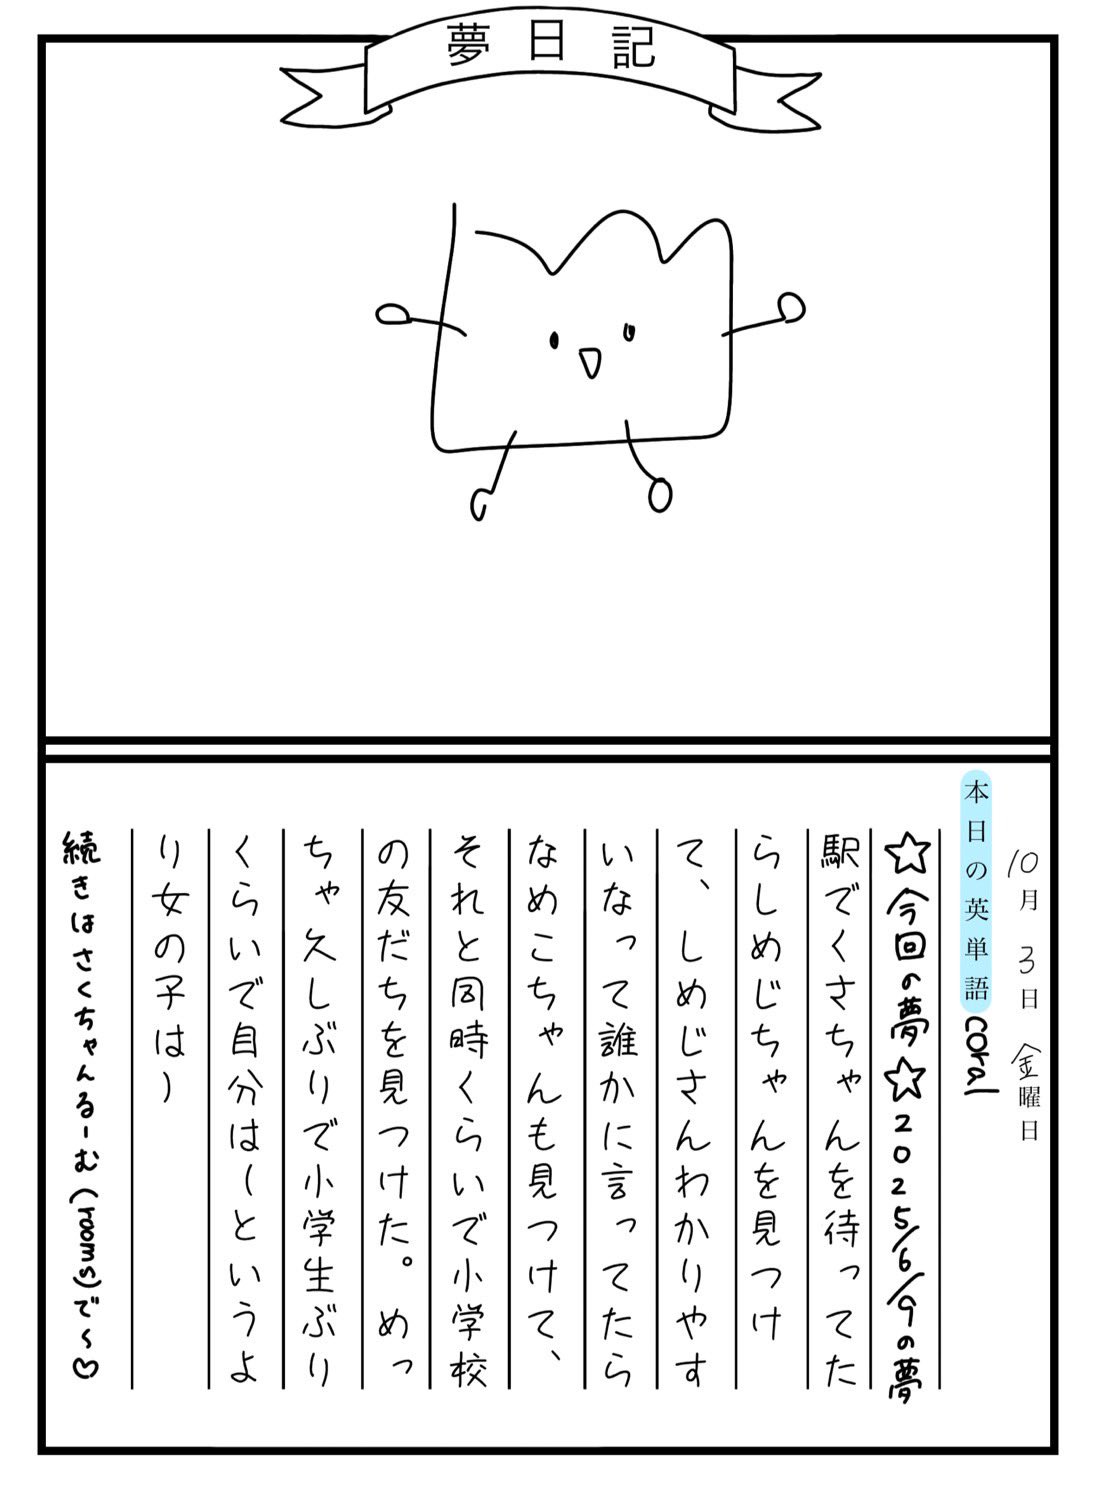 夢日記
10月3日金曜日
本日の英単語 coral
☆今回の夢☆2025/6/9の夢
駅でくさちゃんを待ってた
らしめじちゃんを見つけ
て、しめじさんわかりやす
いなって誰かに言ってたら
なめこちゃんも見つけて、
それと同時くらいで小学校
の友だちを見つけた。めっ
ちゃ久しぶりで小学生ぶり
くらいで自分は(というよ
り女の子は)
続きはさくちゃんるーむ(rooms)で〜♡